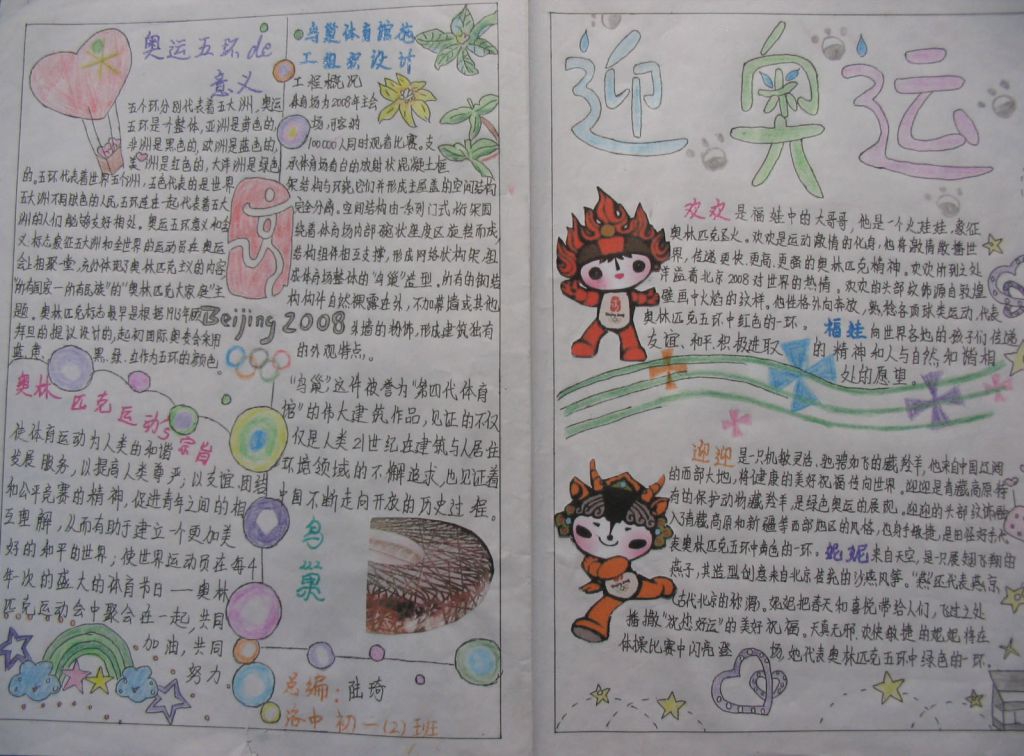 奥运五环de
意义
五个环分别代表着五大洲,奥运
五环是一个整体,亚洲是黄色的,
非洲是黑色的,欧洲是蓝色的,
美洲是红色的,大洋洲是绿色
的。五环代表世界五个洲,五色代表的是世界
五大洲不同肤色的人民,五环连在一起代表着五大
洲的人们能够友好相处。奥运五环意义和含
义:标志象征五大洲和全世界的运动员在奥运
会上相聚一堂,充分体现了奥林匹克主义的内容
"所有国家—所有民族"的"奥林匹克大家庭"主
题。奥林匹克标志最早是根据1913年顾
拜旦的提议设计的,起初国际奥委会采用
蓝、黄、黑、绿、红作为五环的颜色。
Beijing 2008
奥林匹克运动宗旨
使体育运动为人类的和谐
发展服务,以提高人类尊严;以友谊、团结
和公平竞赛的精神,促进青年之间的相
互理解,从而有助于建立一个更加美
好的和平的世界;使世界运动员在每4
年一次的盛大的体育节日——奥林
匹克运动会中聚会在一起,共同
加油,共同
努力。
鸟巢体育馆施
工组织设计
工程概况
体育场为2008年主会
场,可容纳
100000人同时观看比赛。支
承体育场看台的放射状混凝土框
架结构与环绕它们并形成主屋盖的空间结构
完全分离。空间结构由一系列门式桁架围
绕着体育场内部碗状座度区旋转而成,
结构组件相互支撑,形成网络状构架,组
成体育场整体的"鸟巢"造型,所有的钢结
构构件自然裸露在外,不加幕墙或其他
外墙的粉饰,形成建筑独有
的外观特点。
"鸟巢"这件被誉为"第四代体育
馆"的伟大建筑作品,见证的不仅
仅是人类21世纪在建筑与人居住
环境领域的不懈追求,也见证着
中国不断走向开放的历史过程。
鸟
巢
总编:陆琦
洛中初一(2)班
迎奥运
欢欢是福娃中的大哥哥,他是一个火娃娃,象征
奥林匹克圣火。欢欢是运动激情的化身,他将激情散播世
界,传递更快、更高、更强的奥林匹克精神。欢欢所到之处,
洋溢着北京2008对世界的热情。欢欢的头部纹饰源自敦煌
壁画中火焰的纹样。他性格外向奔放,熟稔各项球类运动,代表
奥林匹克五环中红色的一环。福娃向世界各地的孩子们传递
友谊、和平、积极进取的精神和人与自然和谐相
处的愿望。
迎迎是一只机敏灵活、驰骋如飞的藏羚羊,他来自中国辽阔
的西部大地,将健康的美好祝福传向世界。迎迎是青藏高原特
有的保护动物藏羚羊,是绿色奥运的展现。迎迎的头部纹饰融
入了青藏高原和新疆等西部地区的风格,他身手敏捷,是田径好手,代
表奥林匹克五环中黄色的一环。妮妮来自天空,是一只展翅飞翔的
燕子,其造型创意来自北京传统的沙燕风筝。"燕"还代表燕京,
古代北京的称谓)。妮妮把春天和喜悦带给人们,飞过之处
播撒"祝您好运"的美好祝福。天真无邪、欢快敏捷的妮妮将在
体操比赛中闪亮登场,她代表奥林匹克五环中绿色的一环。